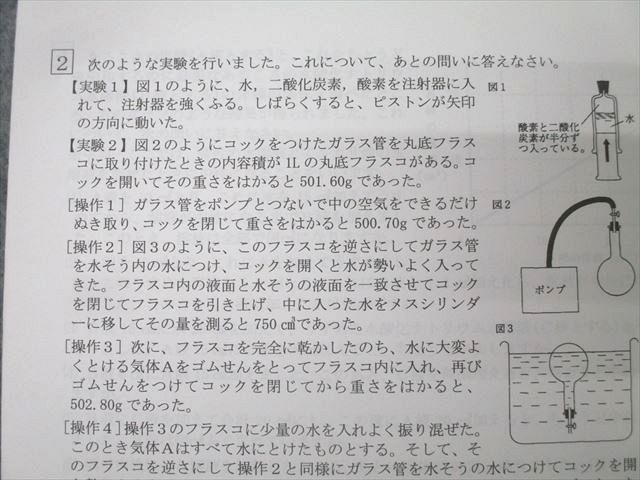 2 次のような実験を行いました。これについて、あとの問いに答えなさい。
【実験１】図１のように，水，二酸化炭素，酸素を注射器に入
れて、注射器を強くふる。しばらくすると、ピストンが矢印
の方向に動いた。
図１
水
酸素と二酸化
炭素が半分ず
つ入っている。
【実験２】図２のようにコックをつけたガラス管を丸底フラス
コに取り付けたときの内容積が 1L の丸底フラスコがある。コ
ックを開いてその重さをはかると 501.60g であった。
[操作１] ガラス管をポンプとつないで中の空気をできるだけ
ぬき取り、コックを閉じて重さをはかると 500.70g であった。
図２
ポンプ
[操作２] 図３のように、このフラスコを逆さにしてガラス管
を水そう内の水につけ、コックを開くと水が勢いよく入って
きた。フラスコ内の液面と水そうの液面を一致させてコック
を閉じてフラスコを引き上げ、中に入った水をメスシリンダ
ーに移してその量を測ると 750 ㎤であった。
図３
[操作３] 次に、フラスコを完全に乾かしたのち、水に大変よ
くとける気体Ａをゴムせんをとってフラスコ内に入れ、再び
ゴムせんをつけてコックを閉じてから重さをはかると、
502.80g であった。
[操作４] 操作３のフラスコに少量の水を入れよく振り混ぜた。
このとき気体Ａはすべて水にとけたものとする。そして、そ
のフラスコを逆さにして操作２と同様にガラス管を水そうの水につけてコックを開